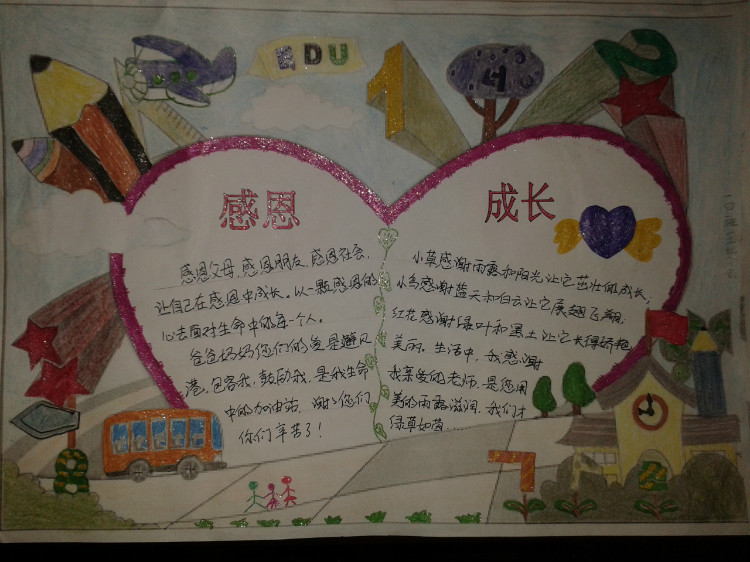 EDU
1
4
2
感恩
感恩父母,感恩朋友,感恩社会,
让自己在感恩中成长。以一颗感恩的
心去面对生命中的每一个人。
爸爸妈妈您们的爱是避风
港,包容我,鼓励我,是我生命
中的加油站,谢谢您们
你们辛苦了!
成长
小草感谢雨露和阳光让它茁壮成长;
小鸟感谢蓝天和白云让它展翅飞翔;
红花感谢绿叶和黑土让它长得娇艳
美丽。生活中,我感谢
我亲爱的老师,是您用
美的雨露滋润,我们才
绿草如茵……
8
7